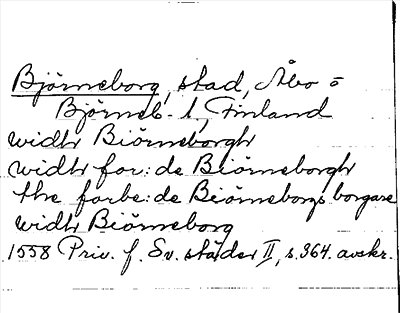 Björneborg, stad, Åbo o
Björneb. l, Finland
widh Biörneborgh
widh for:de Biörneborgh
the forbe:de Beiörneborgs borgare
widh Biörneborg
1558 Priv. f. Sv. städer II, s. 364. avskr.